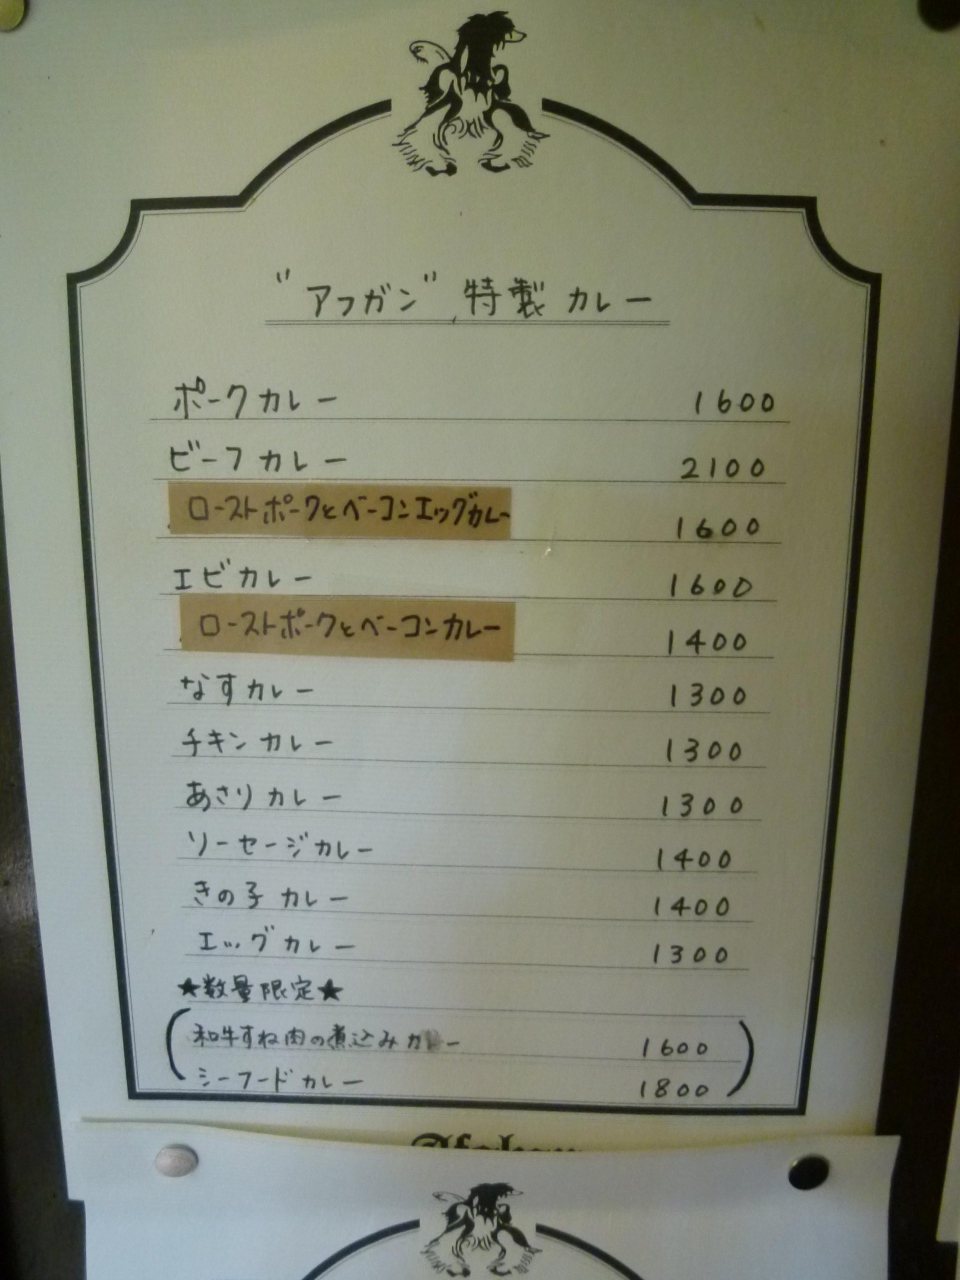 "アフガン" 特製 カレー
ポークカレー 1600
ビーフカレー 2100
ローストポークとベーコンエッグカレー 1600
エビカレー 1600
ローストポークとベーコンカレー 1400
なすカレー 1300
チキンカレー 1300
あさりカレー 1300
ソーセージカレー 1400
きの子カレー 1400
エッグカレー 1300
★数量限定★
(和牛すね肉の煮込みカレー 1600
シーフードカレー 1800)